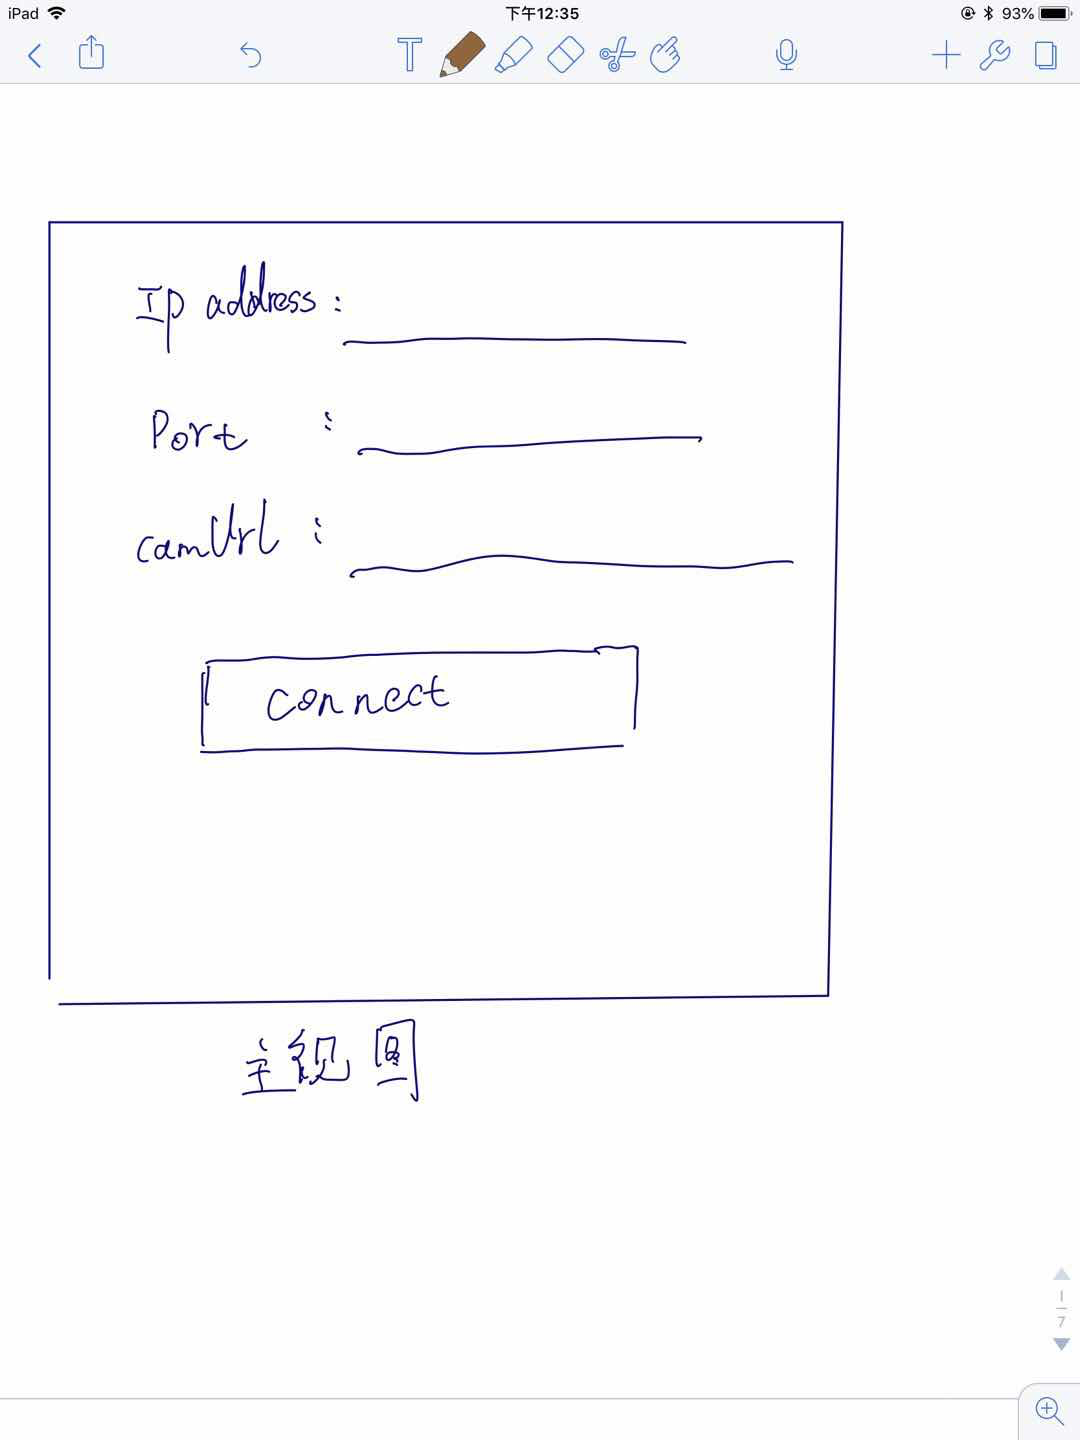 iPad 下午12:35 93%
T
Ip address :
Port :
camUrl :
connect
主视图
1
7